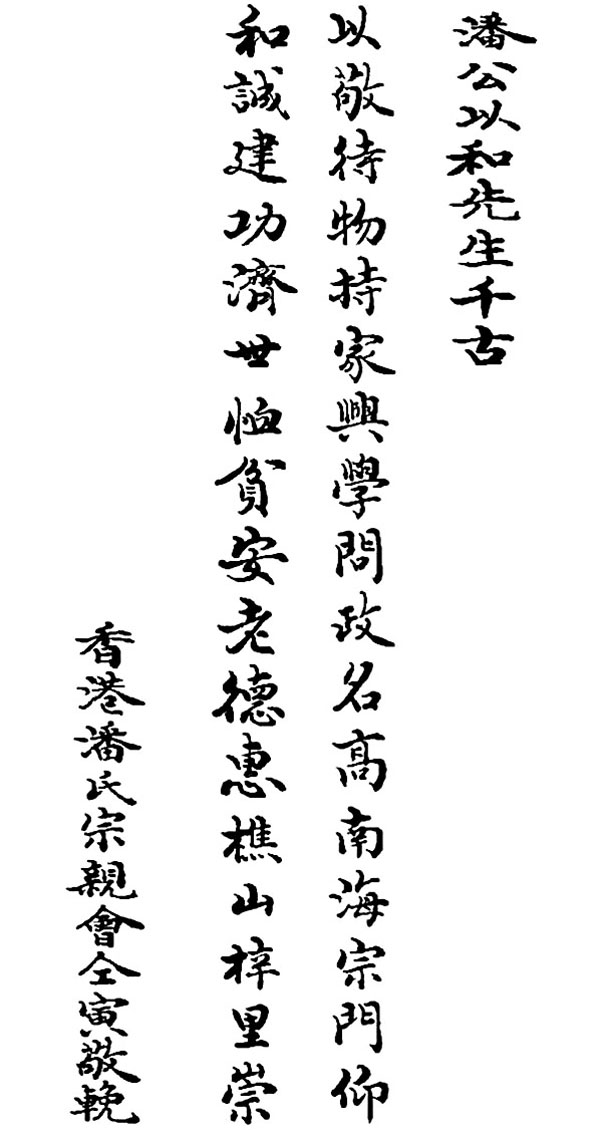 潘公以和先生千古
以敬待物持家興學問政名高南海宗門仰
和誠建功濟世恤貧安老德惠樵山梓里崇
香港潘氏宗親會仝寅敬輓